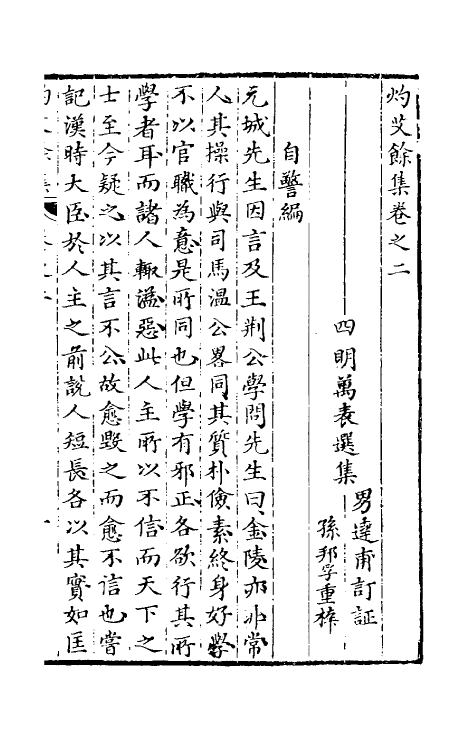 灼艾餘集卷之二
四明萬表選集
男達甫訂証
孫邦孚重梓
自警編
元城先生因言及王荆公學問先生曰金陵亦非常
人其操行與司馬温公畧同其質朴儉素終身好學
不以官職為意是所同也但學有邪正各欲行其所
學者耳而諸人輒溢惡此人主所以不信而天下之
士至今疑之以其言不公故愈毀之而愈不信也嘗
記漢時大臣於人主之前說人短長各以其實如匡